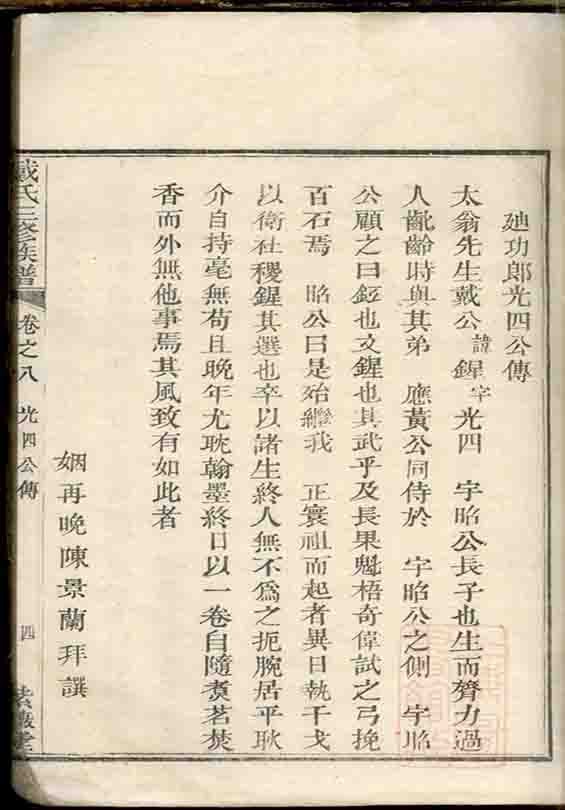 廸功郎光四公傳
太翁先生戴公諱鍟字光四 宇昭公長子也生而膂力過
人齠齡時與其弟 應黃公同侍於 宇昭公之側 宇昭
公顧之曰鋞也文鍟也其武乎及長果魁梧奇偉試之弓挽
百石焉 昭公曰是殆繼我 正寰祖而起者異日執干戈
以衛社稷鍟其選也卒以諸生終人無不為之扼腕居平耿
介自持毫無苟且晚年尤耽翰墨終日以一卷自隨煑茗焚
香而外無他事焉其風致有如此者
姻再晚陳景蘭拜譔
戴氏三修族譜 卷之八 光四公傳 四